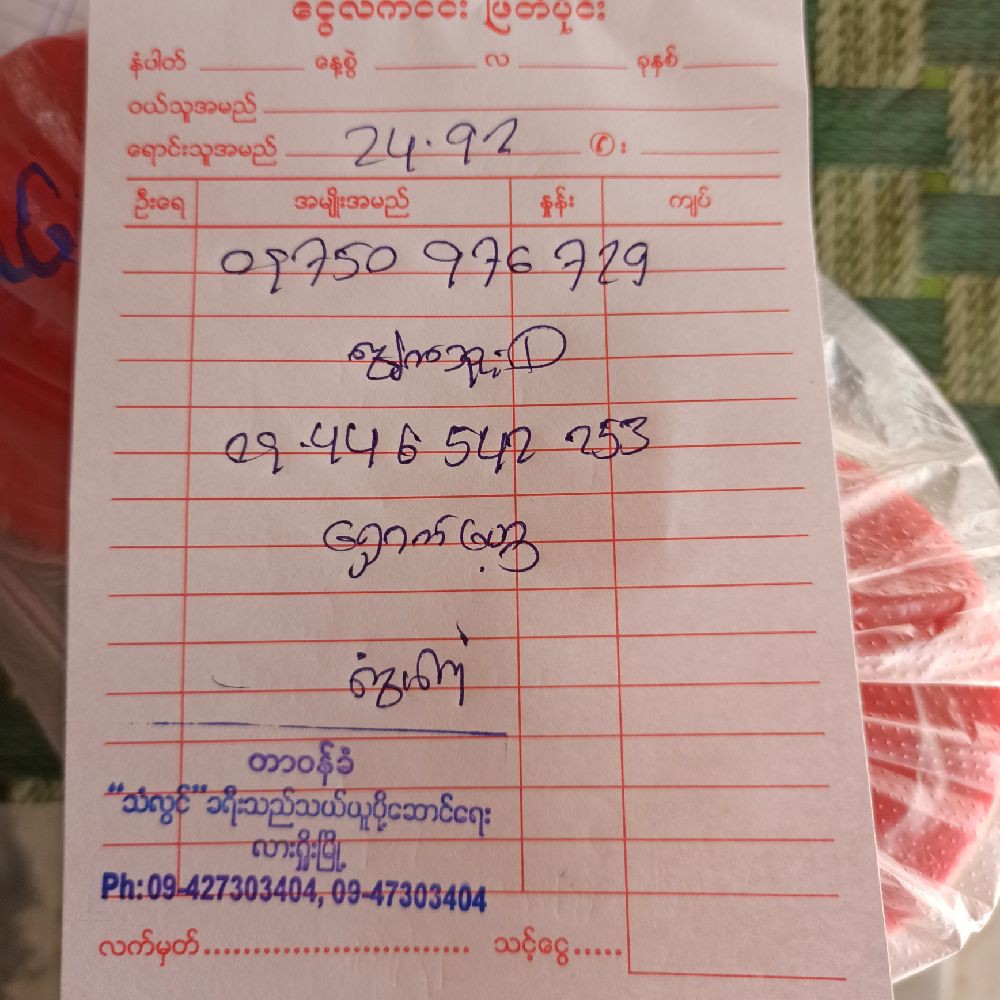 ငွေလက်ငင်း ဖြတ်ပိုင်း
နံပါတ် နေ့စွဲ လ ခုနှစ်
ဝယ်သူအမည်
ရောင်းသူအမည် 24.92 ✆:
ဦးရေ အမျိုးအမည် နှုန်း ကျပ်
09750 976 729
09.446 542 253
တာဝန်ခံ
“သံလွင်” ခရီးသည်သယ်ယူပို့ဆောင်ရေး
လားရှိုးမြို့
Ph: 09-427303404, 09-47303404
လက်မှတ်.............................. သင့်ငွေ......